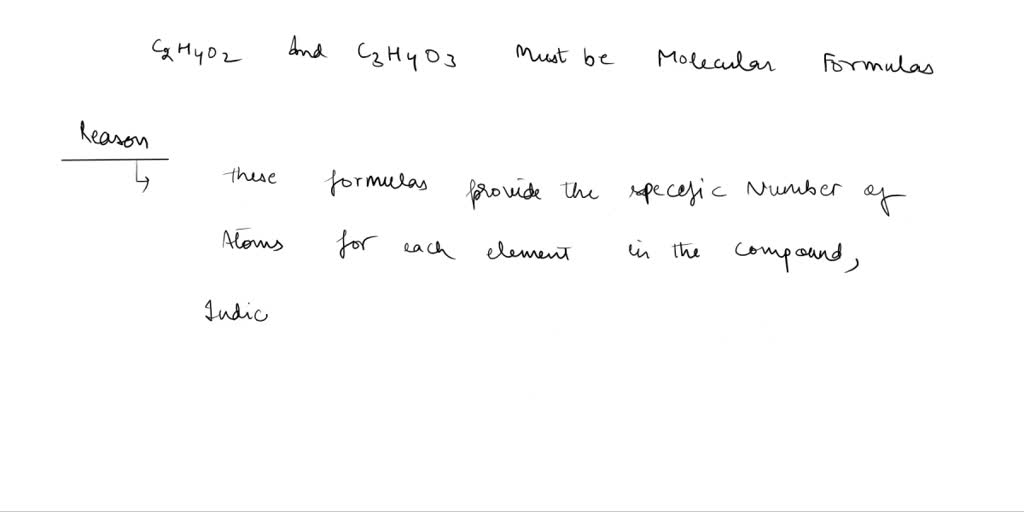 C2H4O2 And C3H4O3 Must be Molecular Formulas
Reason
these formulas provide the specefic Number of
Atoms for each element in the compound,
Indic